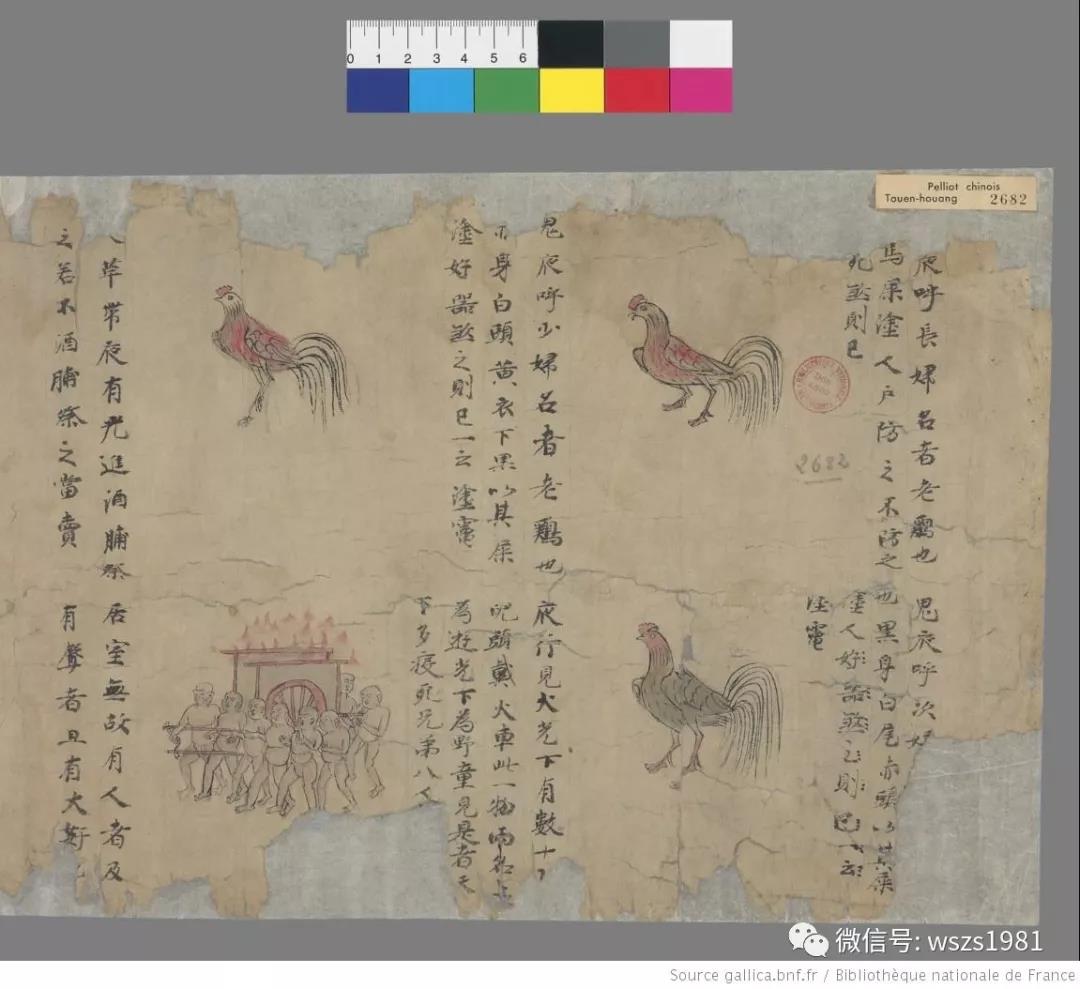 0 1 2 3 4 5 6
Pelliot chinois
Touen-houang 2682
夜呼長婦名者老鷄也
馬屎塗人戶防之不防之
死煞則已
鬼夜呼少婦名者老鷄也
身白頭黃衣下黑以其屎
塗好器煞之則已一云塗竈
草帶夜有光進酒脯祭
之若不酒脯祭之當賣
鬼夜呼次好
也黑身白尾赤頭以其屎
塗人好器煞之則已一云
塗竈
夜行見火光下有數十
頭戴火車此一物兩名上
為遊光下為野童見是者天
下多疫死兄弟八人
居室無故有人者及
有聲者且有大
2682
微信号: wszs1981
Source gallica.bnf.fr / Bibliothèque nationale de France